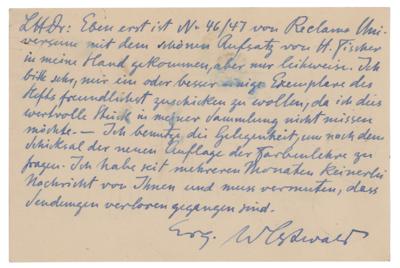 LHDr: Eben erst ist No 46/47 von Reclams Uni-
versum mit dem schönen Aufsatz von H. Fischer
in meine Hand gekommen, aber nur leihweise. Ich
bitte sehr, mir ein oder besser einige Exemplare des
Hefts freundlichst zuschicken zu wollen, da ich dies
wertvolle Stück in meiner Sammlung nicht missen
möchte. — Ich benutze die Gelegenheit, um nach dem
Schicksal der neuen Auflage der Farbenlehre zu
fragen. Ich habe seit mehreren Monaten keinerlei
Nachricht von Ihnen und muss vermuten, dass
Sendungen verloren gegangen sind.
W Ostwald